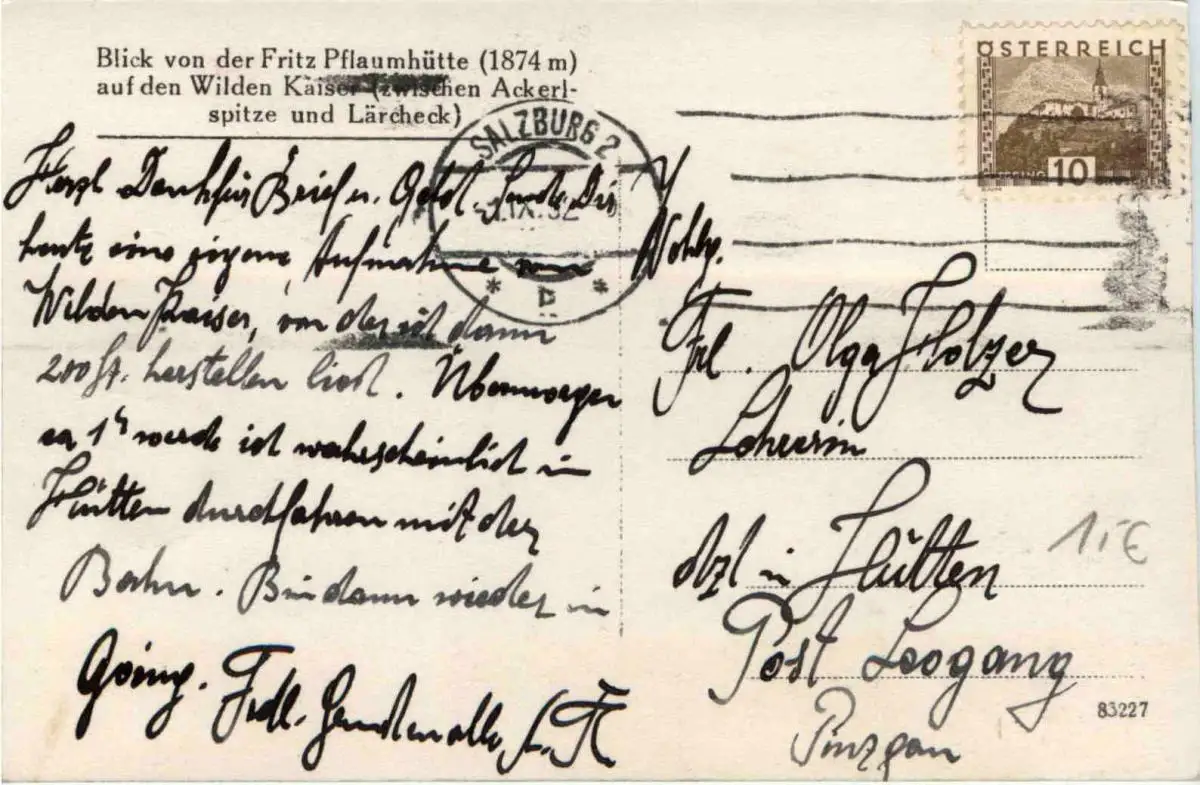 Blick von der Fritz Pflaumhütte (1874 m)
auf den Wilden Kaiser (zwischen Ackerl-
spitze und Lärcheck)
ÖSTERREICH
10
SALZBURG 2
IX. 32
Herzl. Dank für Brief u. Geld. Sende Dir
heute eine eigene Aufnahme vom
Wilden Kaiser, von der ich dann
200 St. herstellen ließ. Übermorgen
ca 1h werde ich wahrscheinlich in
Hütten durchfahren mit der
Bahn. Bin dann wieder in
Going. Frdl.
Wohlg.
Frl. Olga Holzer
Lehrerin
dzt in Hütten
Post Leogang
Pinzgau
1,-€
83227